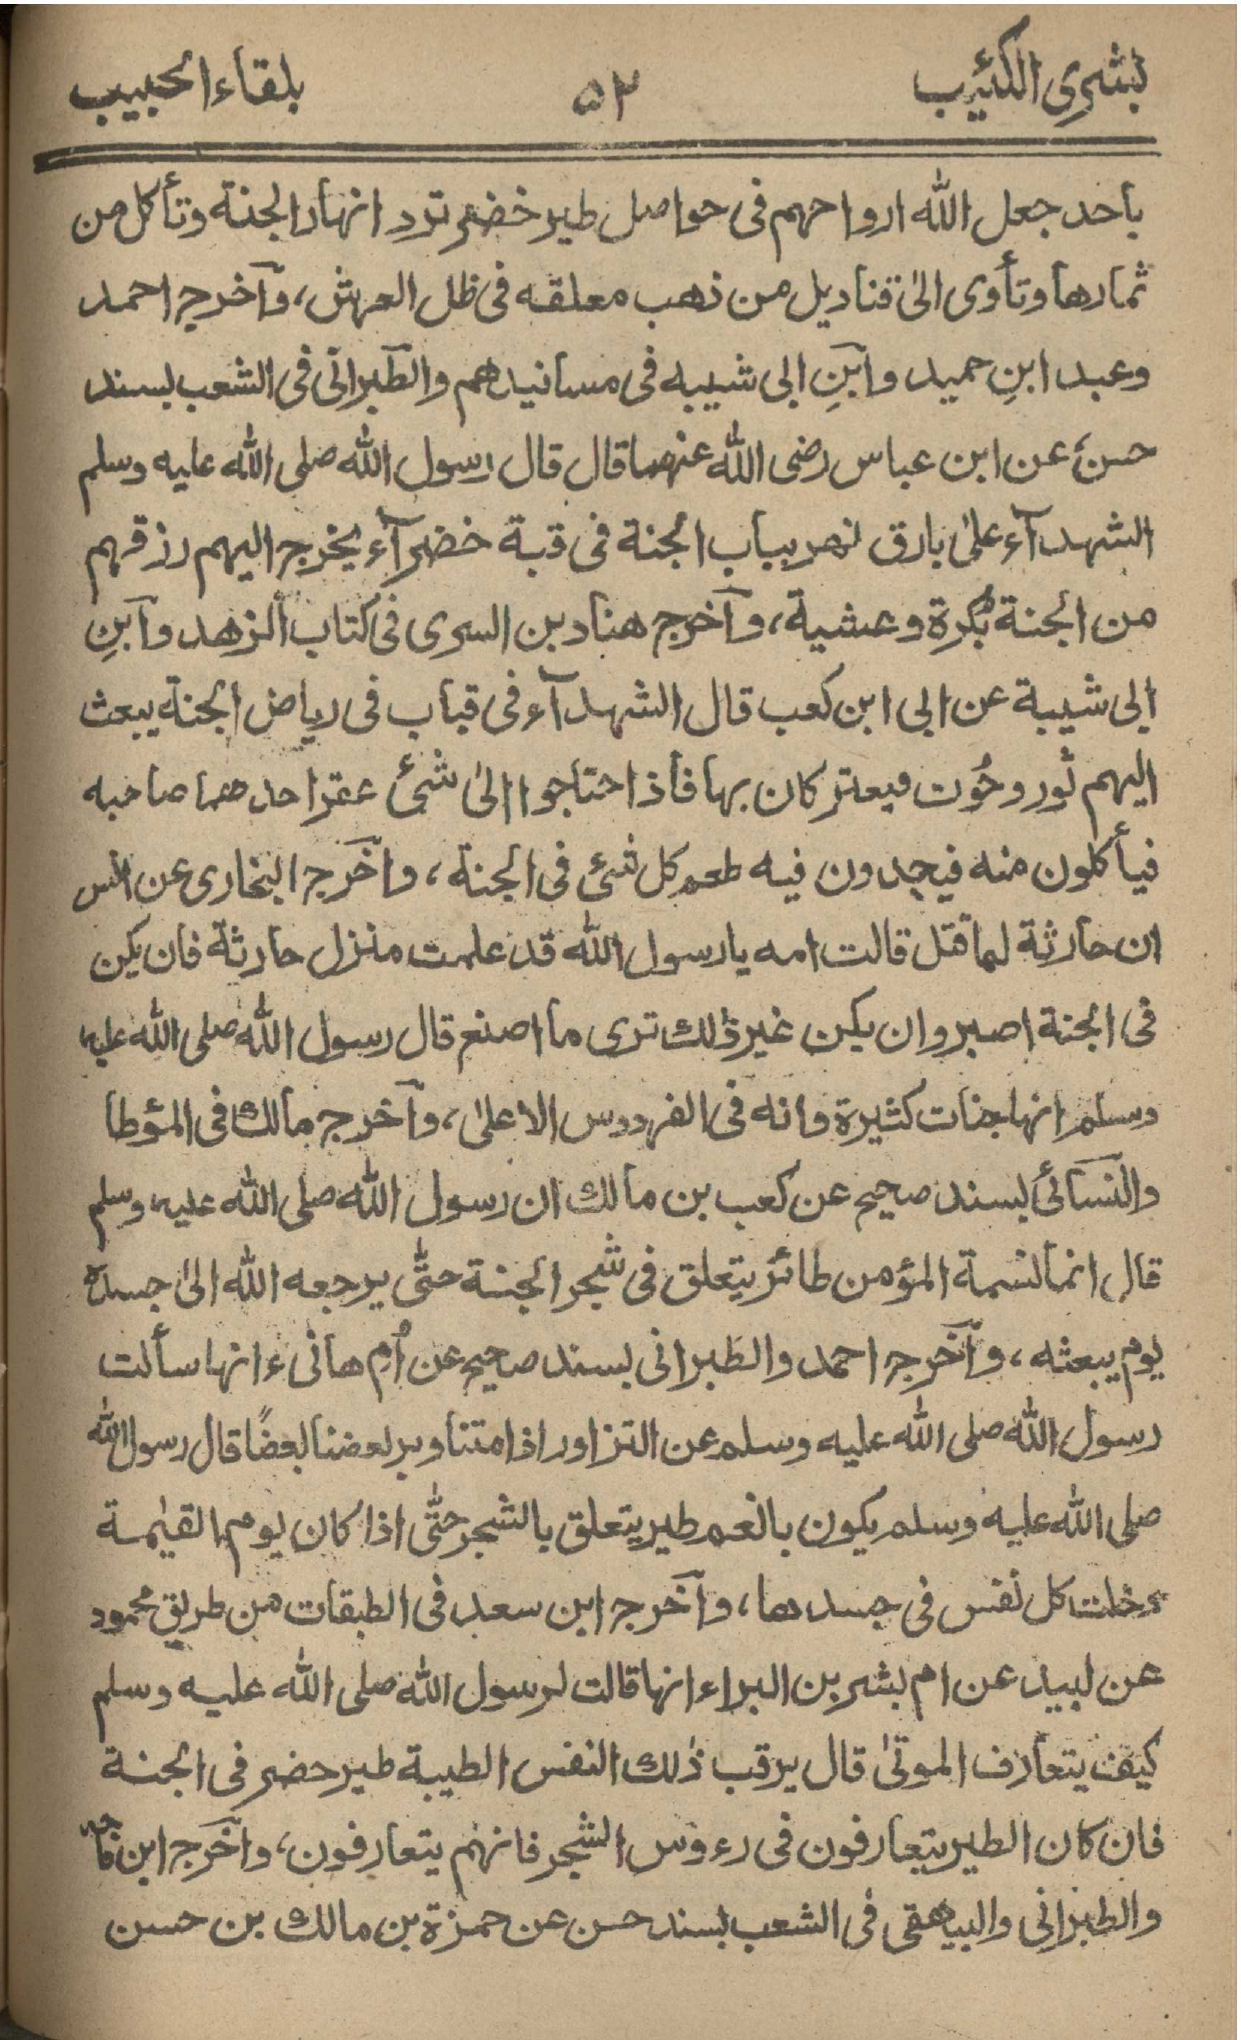 بشرى الكئيب ٥٢ بلقاء الحبيب
باحد جعل الله ارواحهم فى حواصل طير خضر ترد انهار الجنة وتأكل من
ثمارها وتأوى الىٰ قناديل من ذهب معلقه فى ظل العرش، وآخرج احمد
وعبد ابنِ حميد وآبنِ ابى شيبه فى مسانيدهم والطبرانى فى الشعب بسند
حسن عن ابن عباس رضى الله عنهما قال قال رسول الله صلى الله عليه وسلم
الشهدآء علىٰ بارق نهر بباب الجنة فى قبة خضرآء يخرج اليهم رزقهم
من الجنة بُكرة وعشية، وآخرج هناد بن السرى فى كتاب الزهد وآبنِ
ابى شيبة عن ابى ابن كعب قال الشهدآء فى قباب فى رياض الجنة يبعث
اليهم ثور وحُوت فيعتركان بها فأذا حتاجوا الىٰ شئ عقر احدهما صاحبه
فيأكلون منه فيجدون فيه طعم كل شئ فى الجنة، وآخرج البخارى عن انس
ان حارثة لما قتل قالت امه يا رسول الله قد علمت منزل حارثة فان يكن
فى الجنة اصبر وان يكن غير ذٰلك ترى ما اصنع قال رسول الله صلى الله عليه
وسلم انها جنات كثيرة وانه فى الفردوس الاعلىٰ، وآخرج مالك فى المؤطا
والنسائى بسند صحيح عن كعب بن مالك ان رسول الله صلى الله عليه وسلم
قال انما نسمة المؤمن طائر يتعلق فى شجر الجنة حتّٰى يرجعه الله الىٰ جسده
يوم يبعثه، وآخرج احمد والطبرانى بسند صحيح عن اُم هانىء انها سألت
رسول الله صلى الله عليه وسلم عن التزاور اذا متنا وير بعضنا بعضًا قال رسول الله
صلى الله عليه وسلم يكون بالنعم طير يتعلق بالشجر حتّٰى اذا كان يوم القيٰمة
دخلت كل نفس فى جسدها، وآخرج ابن سعد فى الطبقات من طريق محمود
عن لبيد عن ام بشر بن البراء انها قالت لرسول الله صلى الله عليه وسلم
كيف يتعارف الموتىٰ قال يرقب ذٰلك النفس الطيبة طير حضر فى الجنة
فان كان الطير يتعارفون فى رءوس الشجر فانهم يتعارفون، وآخرج ابن
والطبرانى والبيهقى فى الشعب بسند حسن عن حمزة بن مالك بن حسن